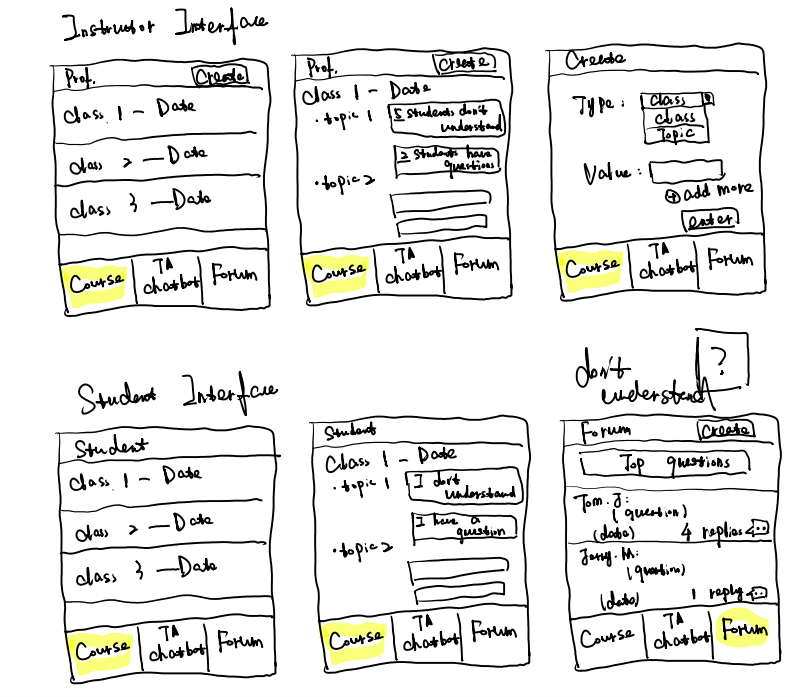 Instructor Interface
Prof.
Create
Class 1 - Date
class 2 - Date
class 3 - Date
Course
TA
chatbot
Forum
Prof.
Create
Class 1 - Date
• topic 1
5 students don't
understand
2 students have
questions
• topic 2
Course
TA
chatbot
Forum
Create
Type :
Class
class
Topic
Value :
+ add more
enter
Course
TA
chatbot
Forum
Student Interface
Student
Class 1 - Date
class 2 - Date
class 3 - Date
Course
TA
chatbot
Forum
Student
Class 1 - Date
• topic 1
I don't
understand
I have a
question
• topic 2
Course
TA
chatbot
Forum
don't
understand
?
Forum
Create
Top questions
Tom. J:
(question)
(date)
4 replies
Jerry. M:
(question)
(date)
1 reply
Course
TA
chatbot
Forum